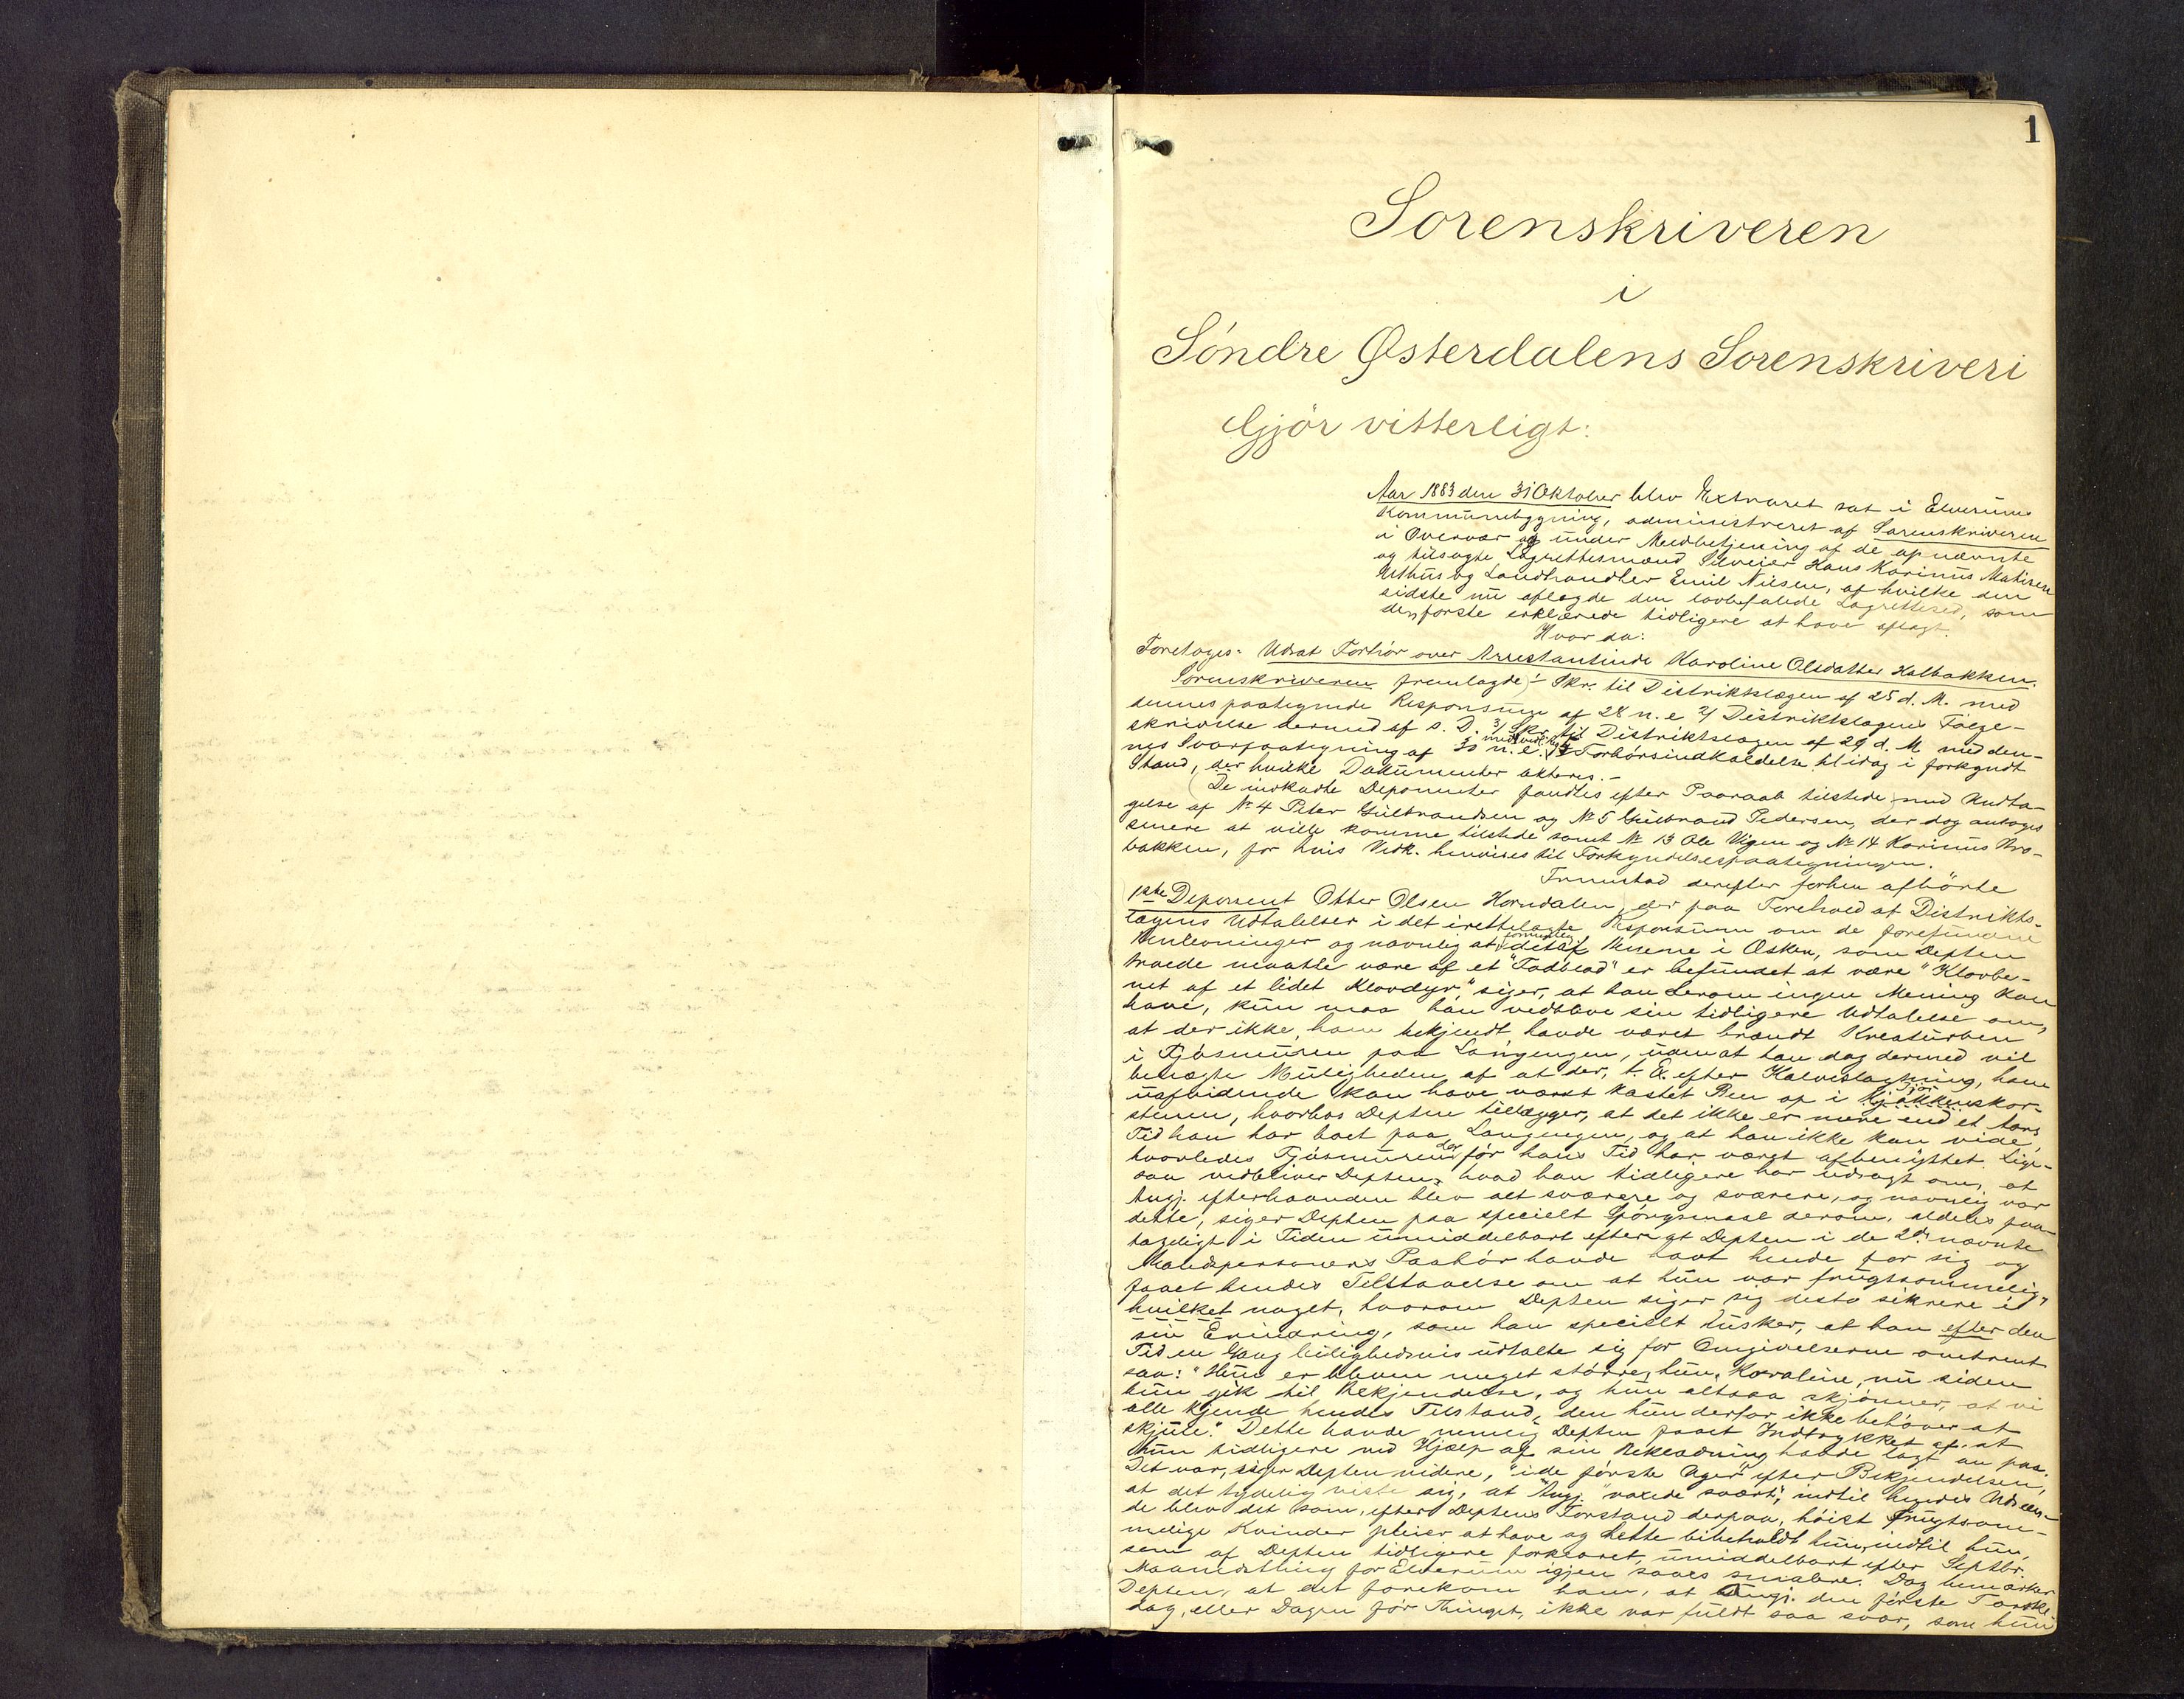 1
Sorenskriveren
i
Søndre Østerdalens Sorenskriveri
Gjør vitterligt:
Aar 1883 den 31 Oktober blev Extraret sat i Elverums
Kommunebygning, administreret af Sorenskriveren
i Overvær og under Medbetjening af de opnævnte
og tilsagte Lagrettesmænd Hans Karinus Mathisen
Uthus og Landhandler Emil Nilsen, af hvilke den
sidste nu aflagde den lovbefalede Lagretteed, som
den første erklærede tidligere at have aflagt.
Hvor da:
Foretoges: Udsat Forhør over Arrestantinde Karoline Olsdatter Kalbakken.
Sorenskriveren fremlagde: 1/ Skr. til Distriktslægen af 25 d. M. med
dennes paategnede Responsum af 28 n. e. 2/ Distriktslægens Følge-
skrivelse dermed af s. D. 3/ Skr. til Distriktslægen af 29 d. M. med den-
nes Svarpaategning af 30 n. e. Forhørsindkaldelse til idag i forkyndt
Stand, der hvilke Dokumenter akteres.-
De indkaldte Deponenter fandtes efter Paaraab tilstede med Undta-
gelse af No 4 Peter Gulbrandsen og No 5 Gulbrand Pedersen, der dog antoges
senere at ville komme tilstede samt No 13 Ole Vigen og No 14 Karinus
bakken, for hvis Vedk. henvises til Forkyndelsespaategningen.
Fremstod derefter forhen afhørte
1ste Deponent Otter Olsen Horndalen, der paa Forehold af Distrikts-
lægens Udtalelser i det irettelagte Responsum om de forefundne
Benlevninger og navnlig at formentlig det af Benene i Æsken, som Depten
troede maatte være af et "Fodblad" er befundet at være "Klovbe-
net af et lidet Klovdyr" siger, at han derom ingen Mening kan
have, kun maa han vedblive sin tidligere Udtalelse om,
at der ikke, ham bekjendt havde været brændt Kreaturben
i Tjøsmuren paa Langengen, uden at han dog dermed vil
benægte Muligheden af at der, t. Ex. efter Kalveslagtning, ham
uafvidende kan have været kastet Ben op i Kjøkkenskor-
stenen, hvorhos Depten tillægger, at det ikke er mere end et Aars
Tid han har boet paa Langengen, og at han ikke kan vide,
hvorledes Tjøsmuren der før hans Tid har været afbenyttet. Lige-
saa vedbliver Depten, hvad han tidligere har udsagt om, at
Angj. efterhaanden blev alt sværere og sværere, og navnlig var
dette, siger Depten paa specielt Spørgsmaal derom, aldeles paa-
tageligt i Tiden umiddelbart efter at Depten i de 2de nævnte
Mandspersoners Paahør havde havt hende for sig og
faaet hendes Tilstaaelse om at hun var frugtsommelig,
hvilket noget, hvorom Depten siger sig desto sikrere i
sin Erindring, som han specielt husker, at han efter den
Tid en Gang leilighedsvis udtalte sig for Omgivelserne omtrent
saa: "Hun er bleven meget større, hun, Karoline, nu siden
hun gik til Bekjendelse, og hun altsaa skjønner, at vi
alle kjende hendes Tilstand, den hun derfor ikke behøver at
skjule." Dette havde nemlig Depten faaet Indtrykket af, at
hun tidligere ved Hjælp af sin Beklædning havde lagt an paa.
Det var, siger Depten videre, "i de første Uger" efter Bekjendelsen,
at det tydelig viste sig, at Angj. "voxede svært", indtil hendes Udseen-
de blev det som, efter Deptens Forstand derpaa, høist frugtsom-
melige Kvinder pleier at have og dette bibeholdt hun, indtil hun,
som af Depten tidligere forklaret, umiddelbart efter Septbr.
Maanedsthing for Elverum igjen saaes smalere. Dog bemærker
Depten, at det forekom ham, at Angj. den første
dag, eller Dagen før Thinget, ikke var fuldt saa svær, som hun